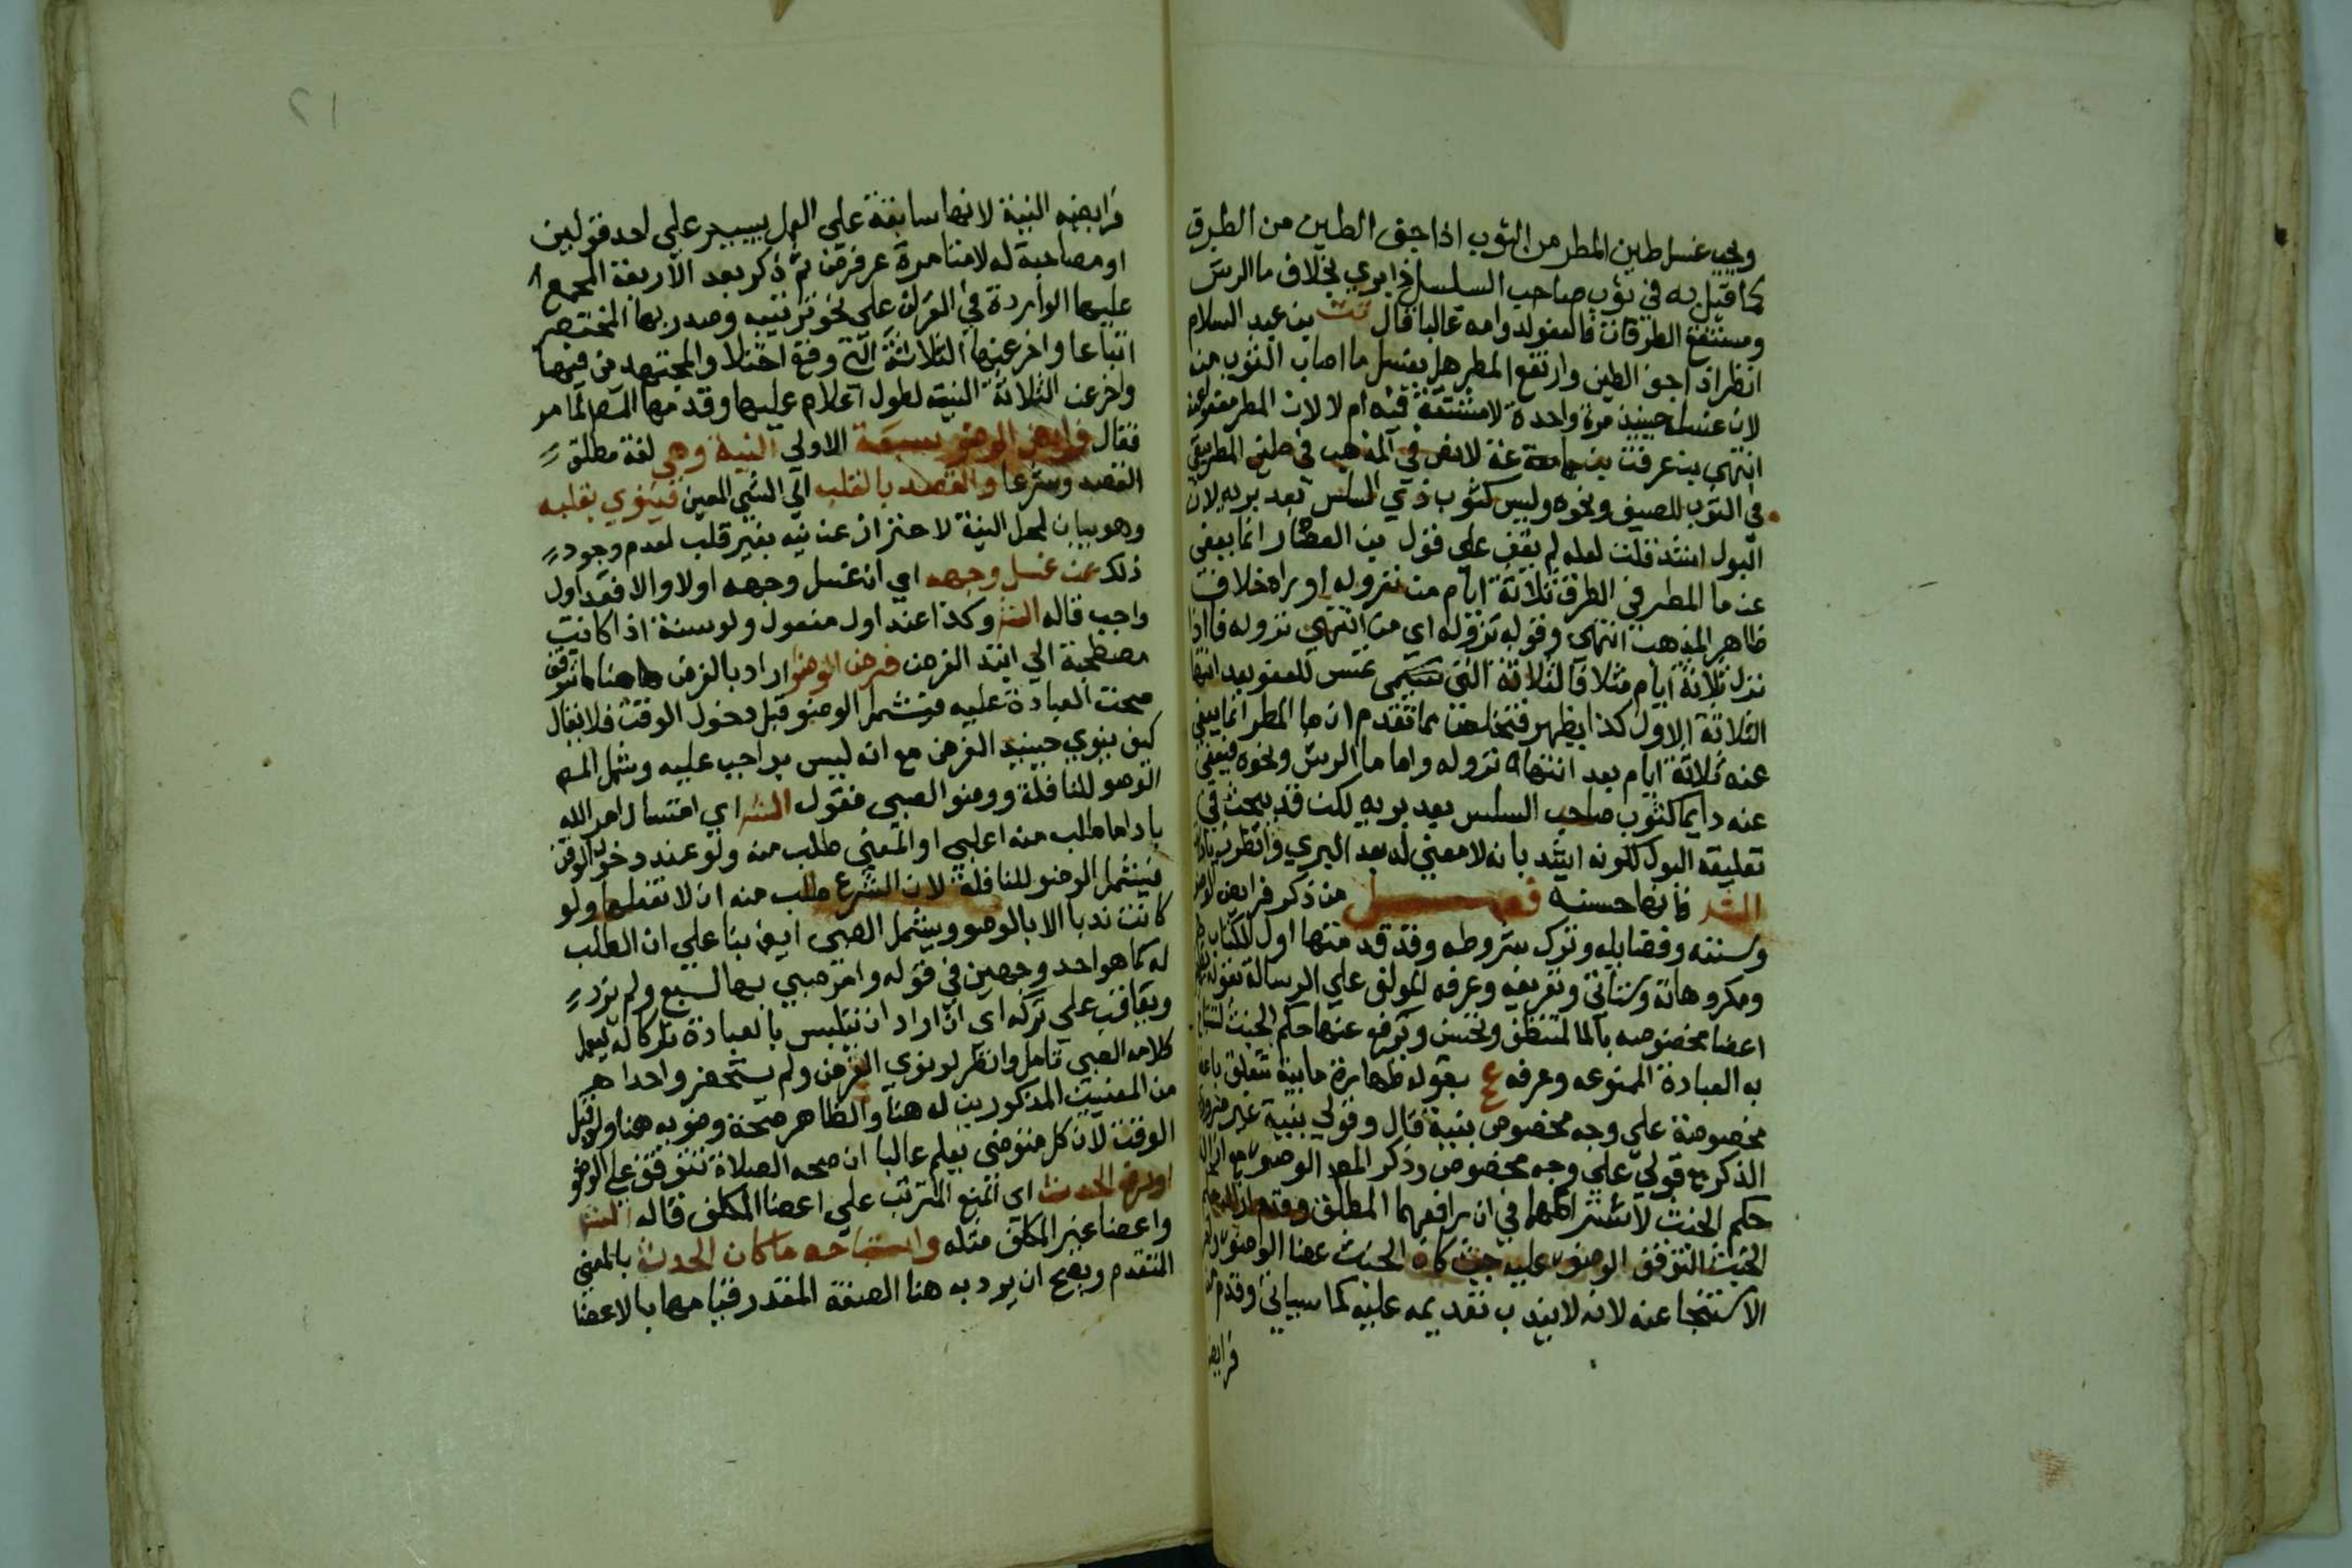 ويجب غسل طين المطر من الثوب اذا جف الطين من الطرق
كما قيل به في ثوب صاحب السلس اذا بري بخلاف ما الرش
ومستنقع الطرقات فالعفو لدوامه غالبا قال تت بن عبد السلام
انظر اذا جف الطين وارتفع المطر هل يغسل ما اصاب الثوب منه
لان غسله حينيذ مرة واحدة لا مشقة فيه ام لا لان المطر معفو عنه
انتهى بن عرفة بن جامعة عنه لا نص في المذهب في طين المطر يبقى
في الثوب للصيف ونحوه وليس كثوب ذي السلس بعد بريه لان
البول اشد قلت لعله لم يقف على قول بن العطار انما يعفى
عن ما المطر في الطرق ثلاثة ايام من نزوله او يراه خلاف
ظاهر المذهب انتهى وقوله نزوله اي من انتهى نزوله فاذا
نزل ثلاثة ايام مثلا فالثلاثة التي للعفو بعد انتها
الثلاثة الاول كذا يظهر فتخلص مما تقدم ان ما المطر انما يعفى
عنه ثلاثة ايام بعد انتهاء نزوله واما ما الرش ونحوه فيعفى
عنه دايما كثوب صاحب السلس بعد بريه لكن قد يبحث في
تعليقه البول لكونه اشد بانه لا معنى له بعد البري وانظر
فانها حسنة فصل من ذكر فرايض الوضو
وسننه وفضايله وترك شروطه وقد قدمتها اول الكتاب
ومكروهاته وستاتي وتعريفه وعرفه المولف على الرسالة بقوله
اعضا مخصوصه بالما لتنظف وتحسن ويرفع عنها حكم الحدث
به العبادة الممنوعه وعرفه ع بقوله طهارة مايية تتعلق باعضا
مخصوصة على وجه مخصوص بنية قال وقولي بنية غير
الذكر مع قولي على وجه مخصوص وذكر المص الوضو مع
حكم الخبث لاشتراكهما في ان رافعهما المطلق وقدم
الخبث لتوقف الوضو عليه حيث كان الخبث عضا الوضو
الاستنجا عنه لانه لا يندب تقديمه عليه كما سياتي وقدم
فرايض
٢١
فرايضه النية لانها سابقة على العمل بيسير على احد قولين
او مصاحبة له لا متاخرة عن فرض ثم ذكر بعد الاربعة المجمع
عليها الواردة في القران على نحو ترتيبه وصدر بها المختصر
اتباعا واخر عنها الثلاثة التي وقع اختلاف المجتهدين فيها
واخر عن الثلاثة النية لطول الكلام عليها وقدمها المص لما مر
فقال فرايض الوضو سبعة الاولى النية وهي لغة مطلق
القصد وشرعا والقصد بالقلب الى الشي المعين فينوي بقلبه
وهو بيان لمحل النية لا احتراز عن نية بغير قلب لعدم وجود
ذلك عند غسل وجهه اي ان غسل وجهه اولا والا فعند اول
واجب قاله الش وكذا عند اول مفعول ولو سنة اذا كانت
مصطحبة الى ابتد الفرض فرض الوضو اراد بالفرض هاهنا ما تتوقف
صحت العبادة عليه فيشمل الوضو قبل دخول الوقت فلا يقال
كيف ينوي حينيذ الفرض مع انه ليس بواجب عليه ويشمل المص
الوضو للنافلة ووضو الصبي فقول الش اي امتثال امر الله
بادا ما طلب منه اعلي او المعنى طلب منه ولو عند دخول الوقت
فيشمل الوضو للنافلة لان الشرع طلب منه ان لا تفعلها ولو
كانت ندبا الا بالوضو ويشمل الصبي ايضا بنا على ان الطلب
له كما هو احد وجهين في قوله وامر صبي بها لسبع ولم يزد
ويعاقب على تركه اي ان اراد ان يتلبس بالعبادة تاركا له ليعمل
كلامه الصبي تامل وانظر لو نوى الفرض ولم يستحضر واحدا
من المعنيين المذكورين له هنا والظاهر صحة وضوبه هنا ولو قبل
الوقت لان كل متوضي يعلم غالبا ان صحة الصلاة تتوقف على الوضو
او رفع الحدث اي المنع المترتب على اعضا المكلف قاله الش
واعضا غير المكلف مثله واستباحه ما كان الحدث بالمعنى
المتقدم ويصح ان يرد به هنا الصفة المقدر قيامها بالاعضا